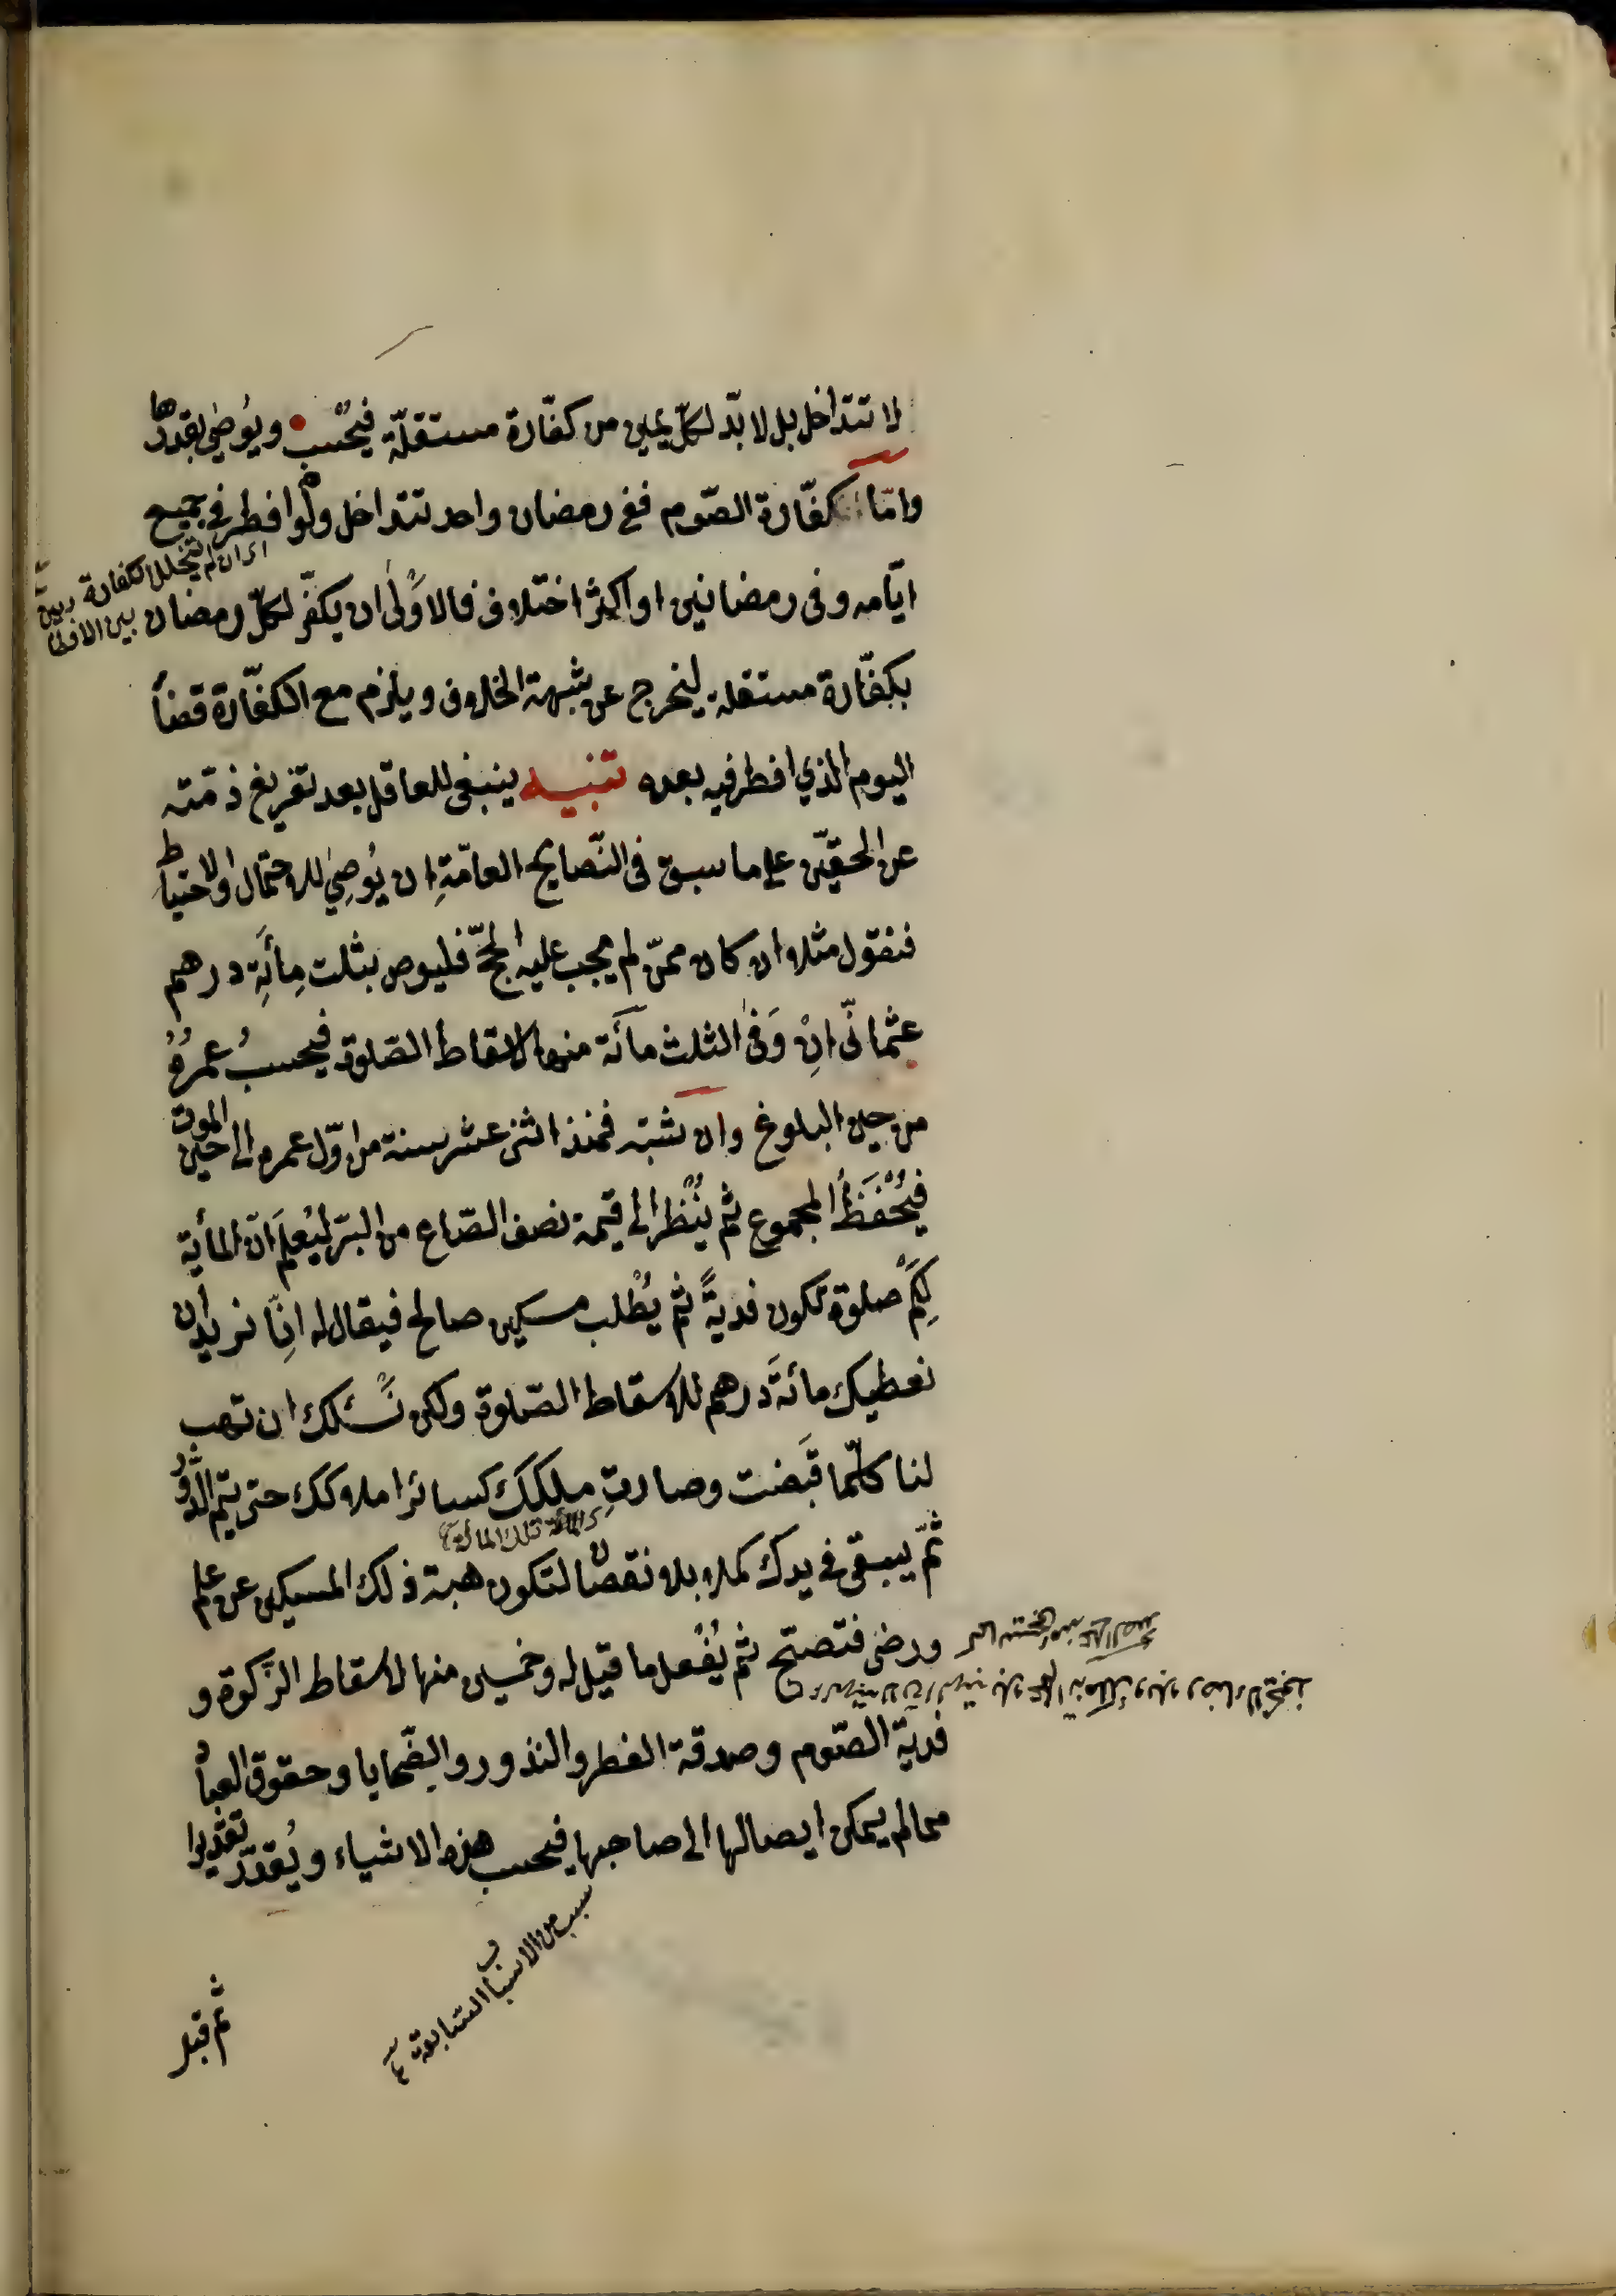 لا تتداخل بل لا بدّ لكلّ يمين من كفّارة مستقلّة فيُحسب ويُوصٰي بقدرها
وامّا كفّارة الصّوم ففى رمضان واحد تتداخل ولو افطر فى جميع
ايّامه وفى رمضانين او اكثر اختلاف فالاَوْلٰى ان يكفّر لكلّ رمضان
اى ان لم يتخلل الكفارة
بين الافطا
بكفّارة مستقلة ليخرج عن شبهة الخلاف ويلزم مع الكفّارة قضأ
اليوم الذي افطر فيه بعده تنبيه ينبغى للعاقل بعد تفريغ ذمّته
عن الحقيّن على ما سبق فى النّصايح العامّةِ ان يُوصِيَ للاحتمال والاحتياط
فنقول مثلا ان كان ممّن لم يجب عليه الحجّ فليوص بثلث مِأئَةِ درهم
عثمانّى انِْ وَفٰى الثلث مأئة منها لاسقاط الصّلوة فيحسبُ عمرُهُ
من حين البلوغ وان نشبته فمنذ اثنى عشر سنة من اوّل عمره الى حين الموت
فيُحْفَظُ المجموع ثم يُنْظر الى قيمة نصف الصّاع من البرّ ليُعلَمَ انّ المأية
لِكَمْ صلوة تكون فديةً ثم يُطْلب مسكين صالح فيقال له انِّا نريد ان
نعطيك مائةَ درهم للاسقاط الصّلوة ولكن نَسْئلك ان تهب
لنا كلّما قَبَضت وصارت ملكك كسائر املاكك حتى يتمّ الدَّوْرُ
تلك المأة
ثمّ يبقى فى يدك كملا بلا نقصان لتكون هبة ذلك المسكين عن علم
ورضى فتصحّ ثم يُفْعل ما قيل له وخمسين منها لاسقاط الزّكوة و
فديّة الصّوم وصدقة الفطر والنذور والضّحايا وحقوق العباد
ممالم يمكن ايصالها الى صاحبها فيحسب هذه الاشياء ويُقدّر تقديرا
سبب من الاسباب السّابعة
ثم قبل